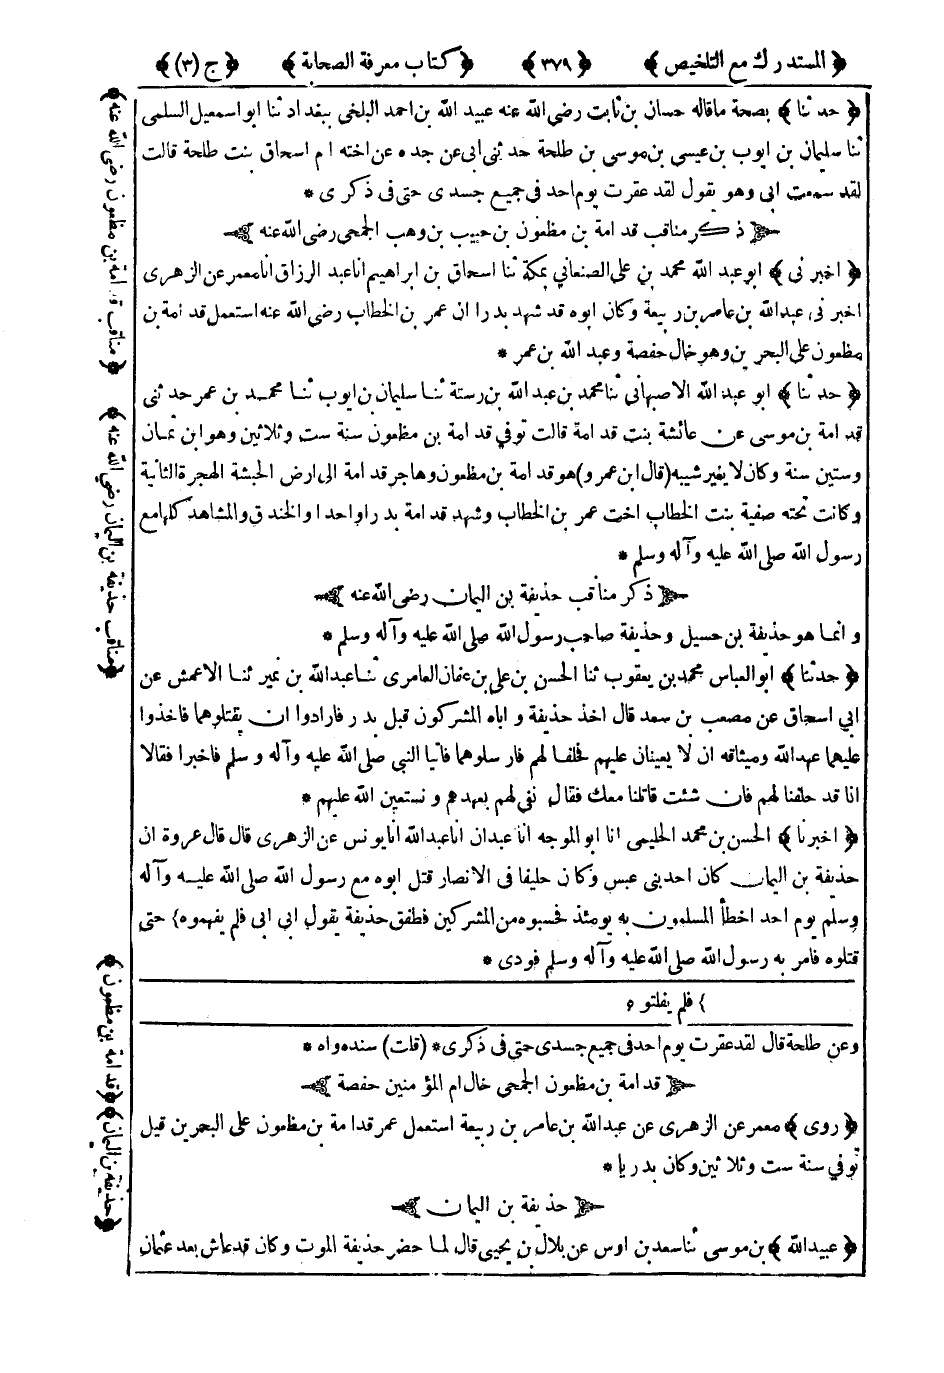 ﴿المستدرك مع التلخيص﴾ ﴿٣٧٩﴾ ﴿كتاب معرفة الصحابة﴾ ﴿ج (٣)﴾
﴿حدثنا﴾ بصحة ماقاله حسان بن ثابت رضي الله عنه عبيد الله بن احمد البلخي ببغداد ثنا ابو اسمعيل السلمي
ثنا سليمان بن ايوب بن عيسى بن موسى بن طلحة حدثني ابي عن جده عن اخته ام اسحاق بنت طلحة قالت
لقد سمعت ابي وهو يقول لقد عقرت يوم احد في جميع جسدى حتى في ذكرى *
﴿ذكر مناقب قدامة بن مظعون بن حبيب بن وهب الجمحي رضي الله عنه﴾
﴿اخبرنى﴾ ابو عبد الله محمد بن علي الصنعاني بمكة ثنا اسحاق بن ابراهيم انا عبد الرزاق انا معمر عن الزهرى
اخبرنى عبد الله بن عامر بن ربيعة وكان ابوه قد شهد بدرا ان عمر بن الخطاب رضي الله عنه استعمل قدامة بن
مظعون على البحرين وهو خال حفصة وعبد الله بن عمر *
﴿حدثنا﴾ ابو عبد الله الاصبهاني ثنا محمد بن عبد الله بن رستة ثنا سليمان بن ايوب ثنا محمد بن عمر حدثنى
قدامة بن موسى عن عائشة بنت قدامة قالت توفي قدامة بن مظعون سنة ست وثلاثين وهو ابن ثمان
وستين سنة وكان لا يغير شيبه (قال ابن عمرو) هو قدامة بن مظعون وهاجر قدامة الى ارض الحبشة الهجرة الثانية
وكانت تحته صفية بنت الخطاب اخت عمر بن الخطاب وشهد قدامة بدرا واحدا والخندق والمشاهد كلها مع
رسول الله صلى الله عليه وآله وسلم *
﴿ذكر مناقب حذيفة بن اليمان رضي الله عنه﴾
وانما هو حذيفة بن حسيل وحذيفة صاحب رسول الله صلى الله عليه وآله وسلم *
﴿حدثنا﴾ ابو العباس محمد بن يعقوب ثنا الحسن بن علي بن عفان العامرى ثنا عبد الله بن نمير ثنا الاعمش عن
ابي اسحاق عن مصعب بن سعد قال اخذ حذيفة واباه المشركون قبل بدر فارادوا ان يقتلوهما فاخذوا
عليهما عهد الله وميثاقه ان لا يعينان عليهم فحلفا لهم فارسلوهما فاتيا النبي صلى الله عليه وآله وسلم فاخبرا فقالا
انا قد حلفنا لهم فان شئت قاتلنا معك فقال نفي لهم بعهدهم ونستعين الله عليهم *
﴿اخبرنا﴾ الحسن بن محمد الحليمي انا ابو الموجه انا عبدان انا عبد الله انا يونس عن الزهرى قال قال عروة ان
حذيفة بن اليمان كان احد بني عبس وكان حليفا في الانصار قتل ابوه مع رسول الله صلى الله عليه وآله
وسلم يوم احد اخطأ المسلمون به يومئذ فحسبوه من المشركين فطفق حذيفة يقول ابي ابي فلم يفهموه} حتى
قتلوه فامر به رسول الله صلى الله عليه وآله وسلم فودى *
} فلم يفلتوه
وعن طلحة قال لقد عقرت يوم احد في جميع جسدى حتى في ذكرى * (قلت) سنده واه *
﴿قدامة بن مظعون الجمحي خال ام المؤمنين حفصة﴾
﴿روى﴾ معمر عن الزهرى عن عبد الله بن عامر بن ربيعة استعمل عمر قدامة بن مظعون على البحرين قيل
توفي سنة ست وثلاثين وكان بدريا *
﴿حذيفة بن اليمان﴾
﴿عبيد الله﴾ بن موسى ثنا سعد بن اوس عن بلال بن يحيى قال لما حضر حذيفة الموت وكان قد عاش بعد عثمان
﴿مناقب قدامة بن مظعون رضي الله عنه﴾
﴿مناقب حذيفة بن اليمان رضي الله عنه﴾
﴿قدامة بن مظعون﴾
﴿حذيفة بن اليمان﴾